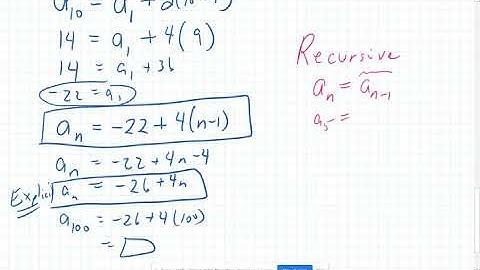 a₁₀ = a₁ +
14 = a₁ + 4(9)
14 = a₁ + 36
-22 = a₁
aₙ = -22 + 4(n-1)
aₙ = -22 + 4n - 4
Explicit aₙ = -26 + 4n
a₁₀₀ = -26 + 4(100)
=
Recursive
aₙ = aₙ₋₁
a₅ =